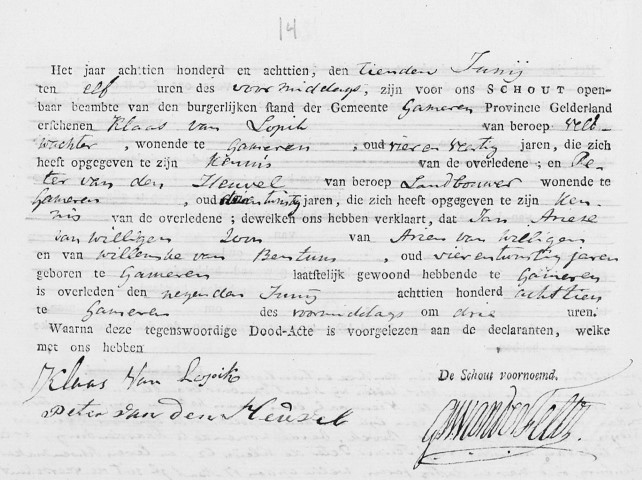 14
Het jaar achttien honderd en achttien, den tienden Junij
ten elf uren des voormiddags, zijn voor ons SCHOUT open-
baar beambte van den burgerlijken stand der Gemeente Gameren Provincie Gelderland
erschenen Klaas van Lopik van beroep veld-
wachter, wonende te Gameren, oud vier en veertig jaren, die zich
heeft opgegeven te zijn Kennis van de overledene; en Pe-
ter van den Heuvel van beroep Landbouwer wonende te
Gameren, oud jaren, die zich heeft opgegeven te zijn Ken-
nis van de overledene; dewelken ons hebben verklaart, dat Jan Ariese
van Willigen Zoon van Arien van Willigen
en van Willemke van Bentum, oud vier en twintig jaren
geboren te Gameren laatstelijk gewoond hebbende te Gameren
is overleden den negenden Junij achttien honderd achttien
te Gameren des voormiddags om drie uren.
Waarna deze tegenswoordige Dood-Acte is voorgelezen aan de declaranten, welke
met ons hebben
Klaas Van Lopik
De Schout voornoemd.
Peter van den Heuvel